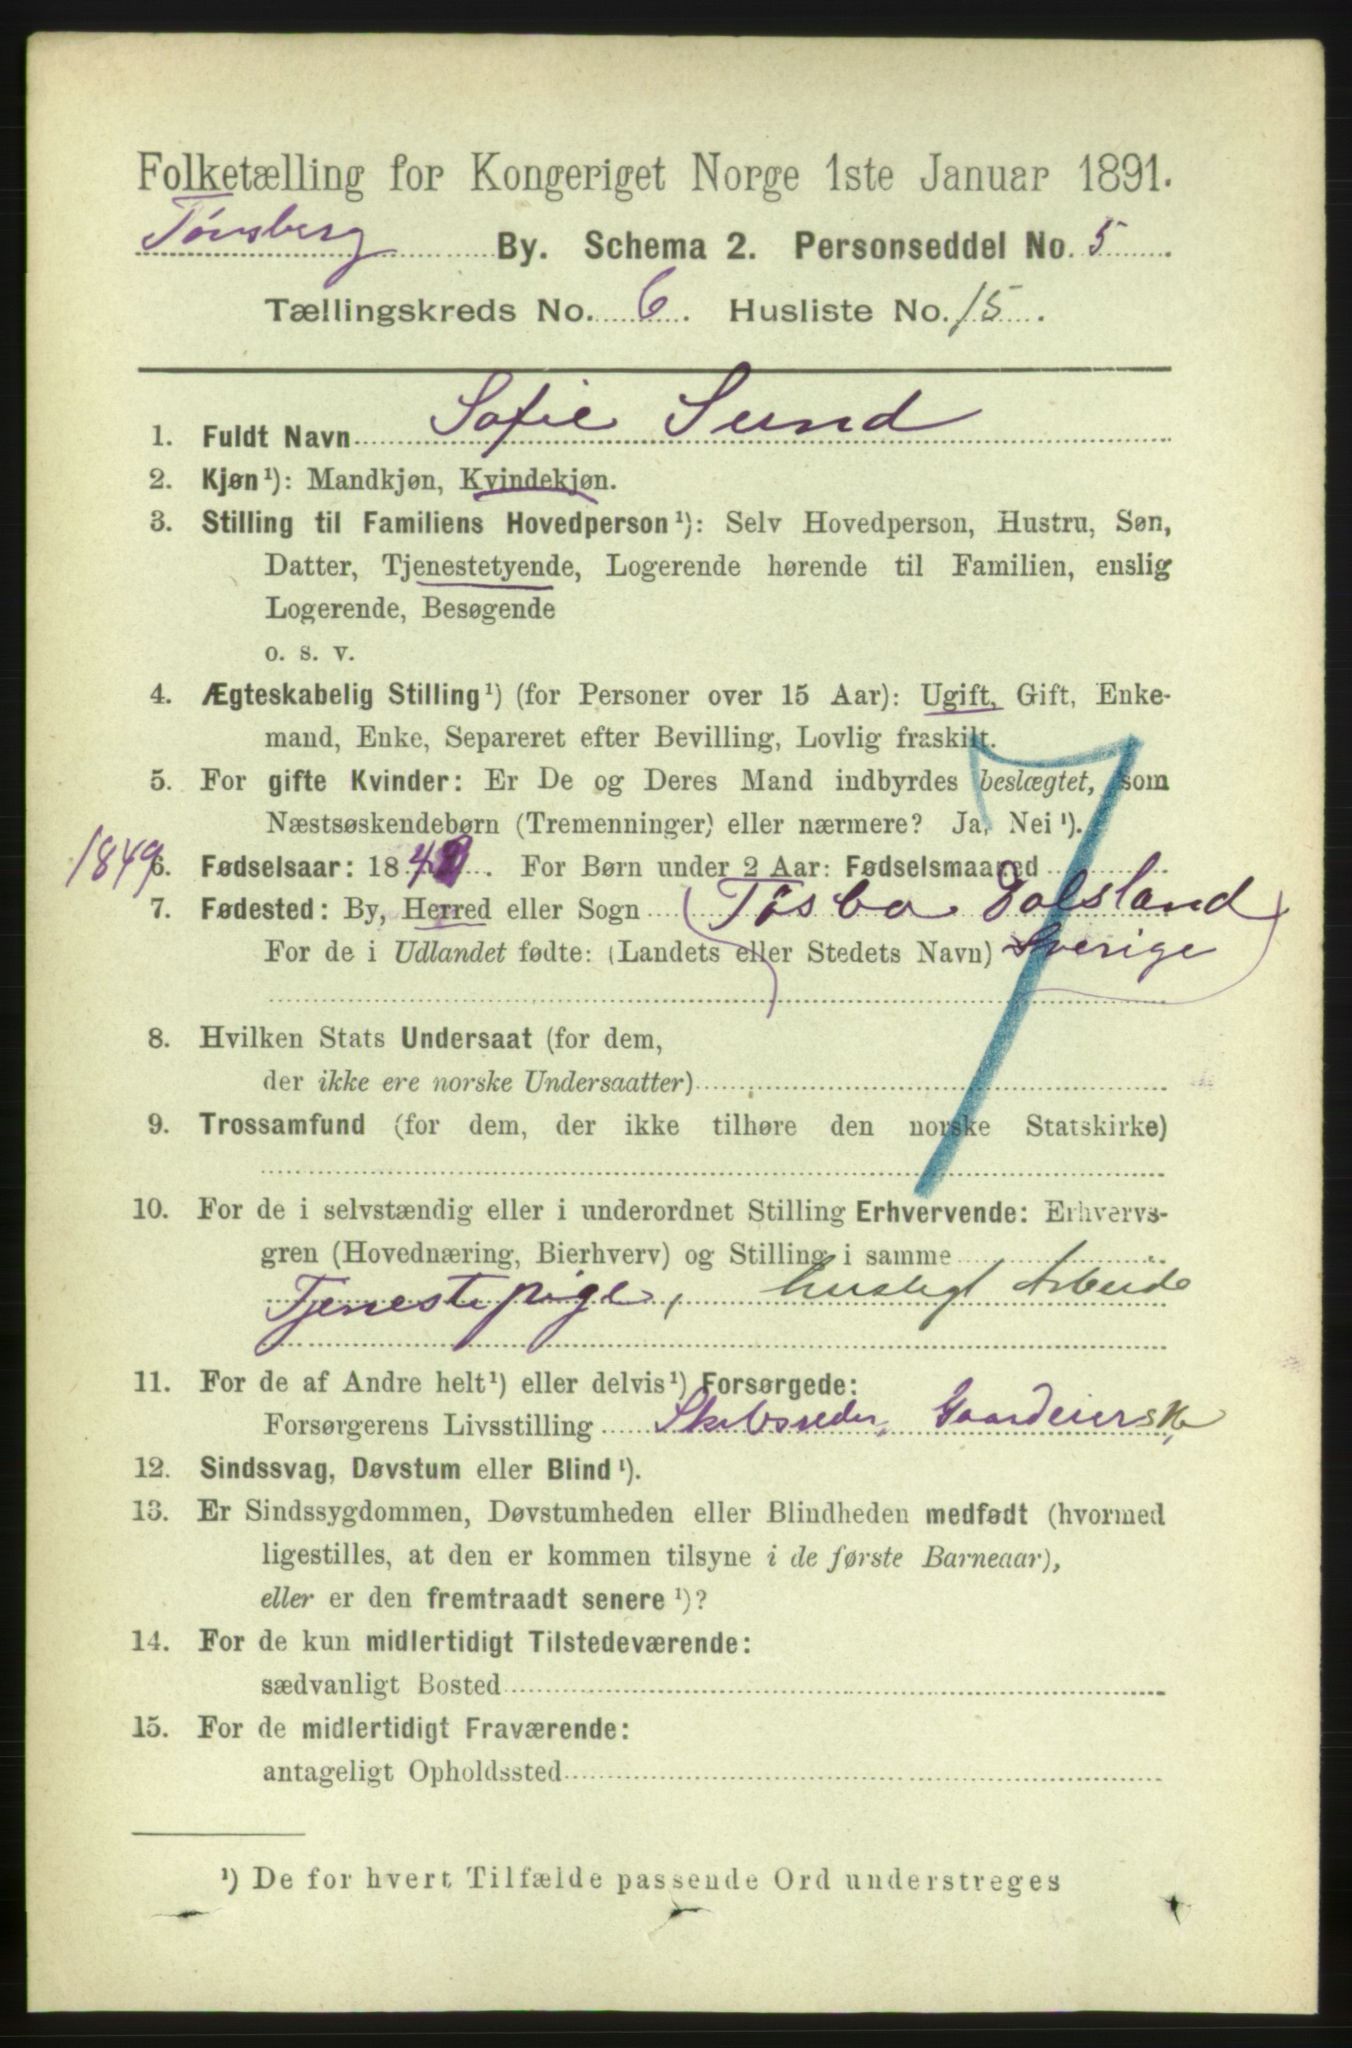 Folketælling for Kongeriget Norge 1ste Januar 1891.
Tönsberg By. Schema 2. Personseddel No. 5
Tællingskreds No. 6. Husliste No. 15.
1. Fuldt Navn Sofie Sund
2. Kjøn ¹): Mandkjøn, Kvindekjøn.
3. Stilling til Familiens Hovedperson ¹): Selv Hovedperson, Hustru, Søn,
Datter, Tjenestetyende, Logerende hørende til Familien, enslig
Logerende, Besøgende
o. s. v.
4. Ægteskabelig Stilling ¹) (for Personer over 15 Aar): Ugift, Gift, Enke-
mand, Enke, Separeret efter Bevilling, Lovlig fraskilt.
5. For gifte Kvinder: Er De og Deres Mand indbyrdes beslægtet, som
Næstsøskendebørn (Tremenninger) eller nærmere? Ja, Nei ¹).
1849 6. Fødselsaar: 1849. For Børn under 2 Aar: Fødselsmaaned
7. Fødested: By, Herred eller Sogn (Tösbo Dalsland
For de i Udlandet fødte: (Landets eller Stedets Navn) Sverige)
8. Hvilken Stats Undersaat (for dem,
der ikke ere norske Undersaatter)
9. Trossamfund (for dem, der ikke tilhøre den norske Statskirke)
10. For de i selvstændig eller i underordnet Stilling Erhvervende: Erhvervs-
gren (Hovednæring, Bierhverv) og Stilling i samme
Tjenestepige, husligt Arbeide
11. For de af Andre helt ¹) eller delvis ¹) Forsørgede:
Forsørgerens Livsstilling Skibsreder, Gaardeierske
12. Sindssvag, Døvstum eller Blind ¹).
13. Er Sindssygdommen, Døvstumheden eller Blindheden medfødt (hvormed
ligestilles, at den er kommen tilsyne i de første Barneaar),
eller er den fremtraadt senere ¹)?
14. For de kun midlertidigt Tilstedeværende:
sædvanligt Bosted
15. For de midlertidigt Fraværende:
antageligt Opholdssted
¹) De for hvert Tilfælde passende Ord understreges
7